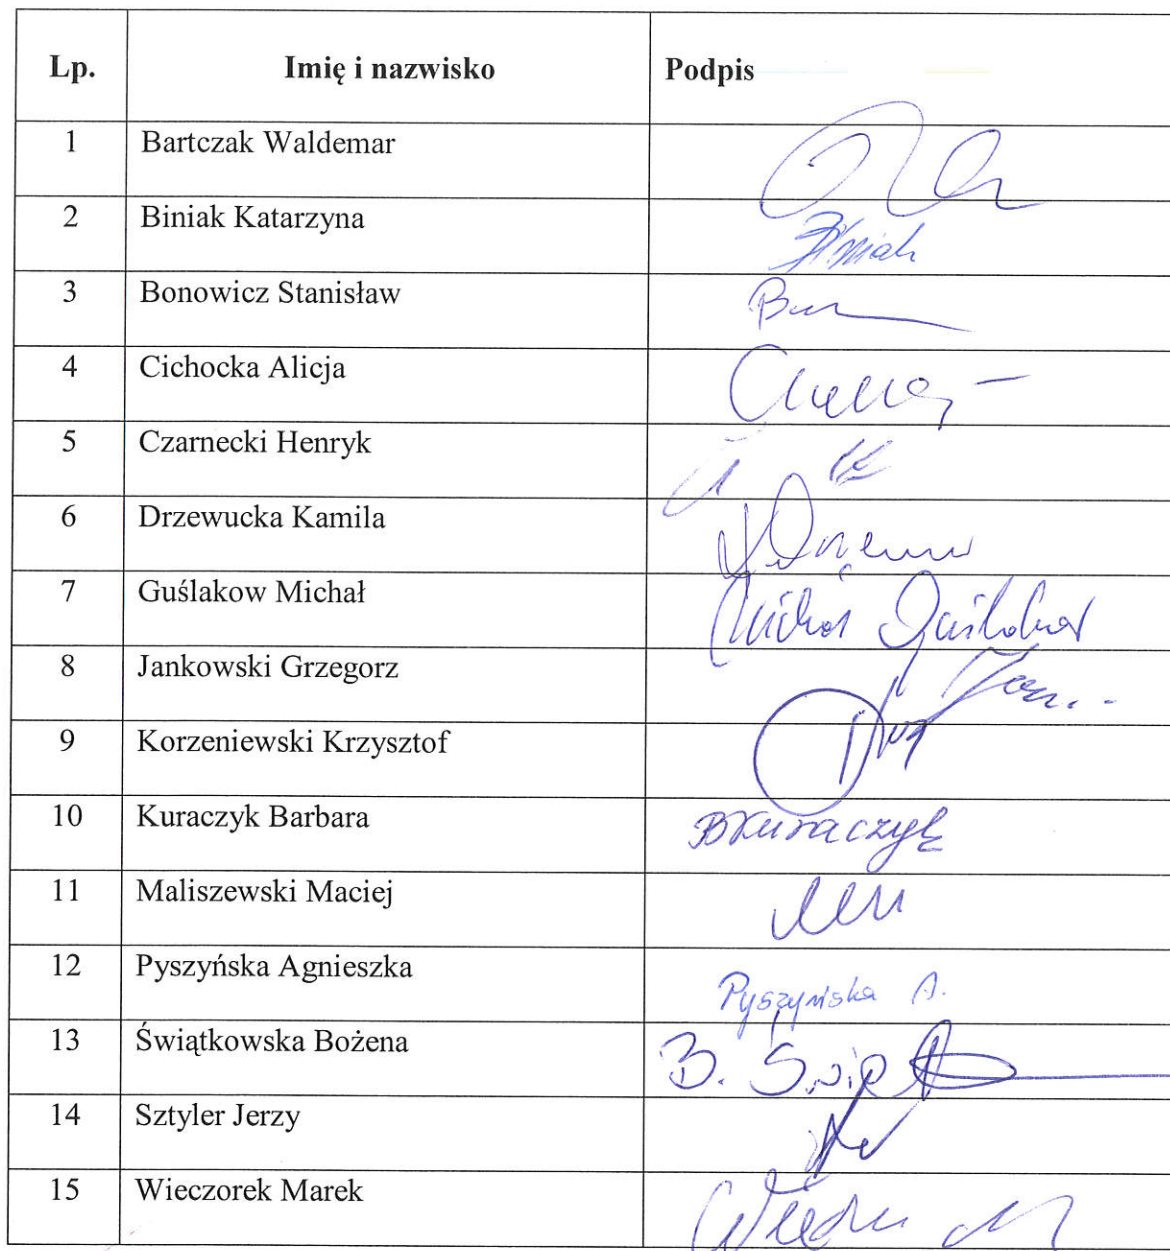 Lp. Imię i nazwisko Podpis
1 Bartczak Waldemar
2 Biniak Katarzyna
3 Bonowicz Stanisław
4 Cichocka Alicja
5 Czarnecki Henryk
6 Drzewucka Kamila
7 Guślakow Michał Michał Guślakow
8 Jankowski Grzegorz
9 Korzeniewski Krzysztof
10 Kuraczyk Barbara BKuraczyk
11 Maliszewski Maciej
12 Pyszyńska Agnieszka Pyszyńska A.
13 Świątkowska Bożena
14 Sztyler Jerzy
15 Wieczorek Marek